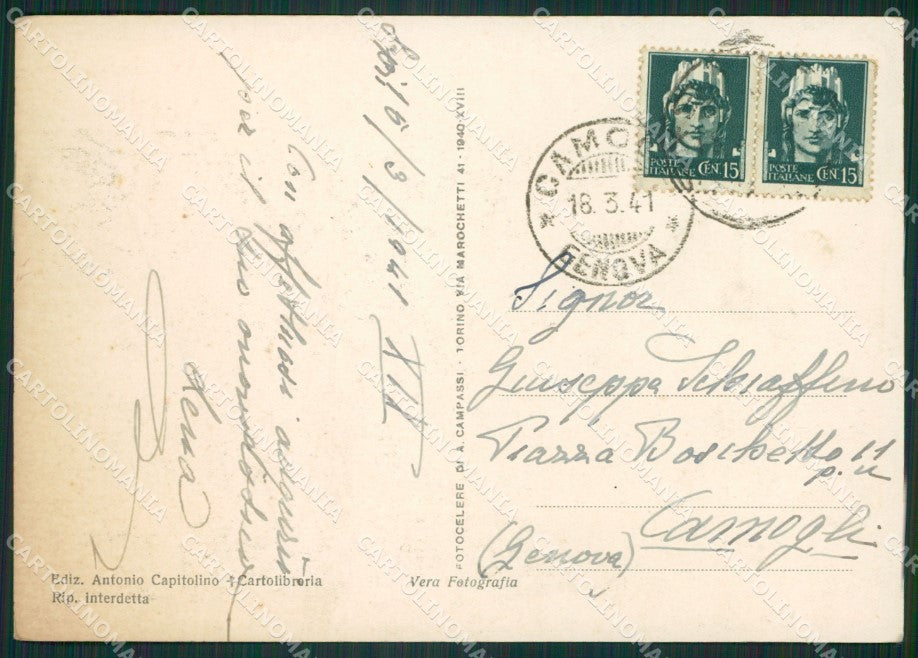 18/3/1941 XIX
Con affettuosi auguri
per il tuo onomastico
FOTOCELERE DI A. CAMPASSI - TORINO, VIA MAROCHETTI 41 - 1940-XVIII
POSTE ITALIANE CEN. 15
POSTE ITALIANE CEN. 15
CAMOGLI
18.3.41
GENOVA
Signor
Giuseppe Schiaffino
Piazza Boschetto 11
Camogli
(Genova)
Ediz. Antonio Capitolino - Cartolibreria
Rip. interdetta
Vera Fotografia
CARTOLINOMANIA